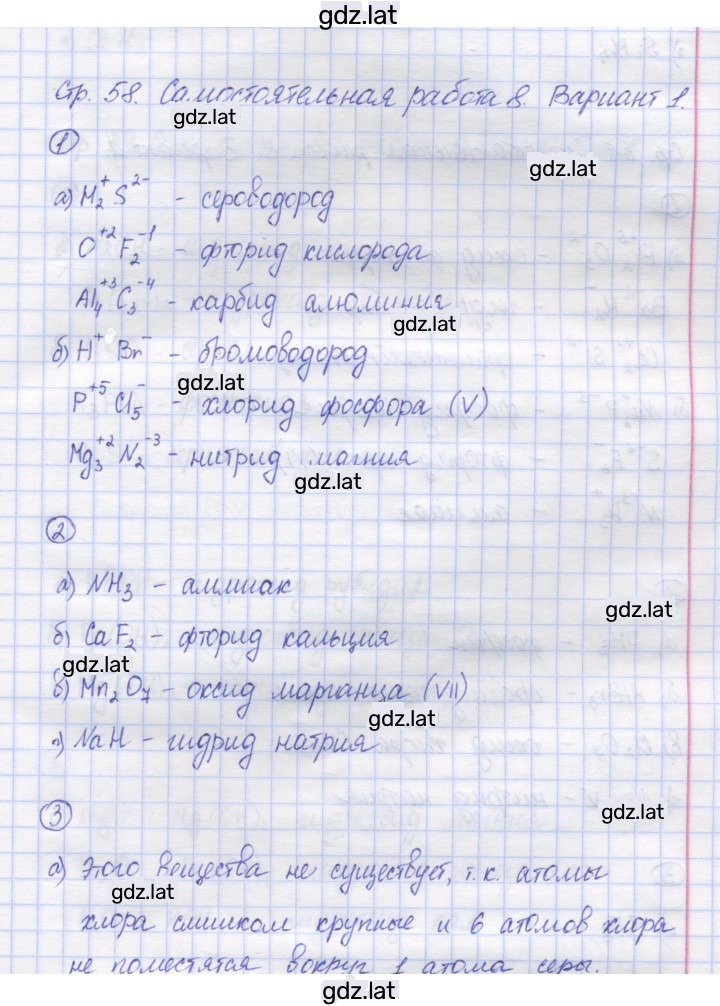 gdz.lat
Стр. 58. Самостоятельная работа 8. Вариант 1.
gdz.lat
①
gdz.lat
а) H₂⁺ S²⁻ - сероводород
O⁺² F₂⁻¹ - фторид кислорода
Al₄⁺³ C₃⁻⁴ - карбид алюминия
gdz.lat
б) H⁺ Br⁻ - бромоводород
gdz.lat
P⁺⁵ Cl₅⁻ - хлорид фосфора (V)
Mg₃⁺² N₂⁻³ - нитрид магния
gdz.lat
②
а) NH₃ - аммиак
gdz.lat
б) CaF₂ - фторид кальция
gdz.lat
б) Mn₂O₇ - оксид марганца (VII)
gdz.lat
г) NaH - гидрид натрия
③
gdz.lat
а) Этого вещества не существует, т.к. атомы
gdz.lat
хлора слишком крупные и 6 атомов хлора
не поместятся вокруг 1 атома серы.
gdz.lat